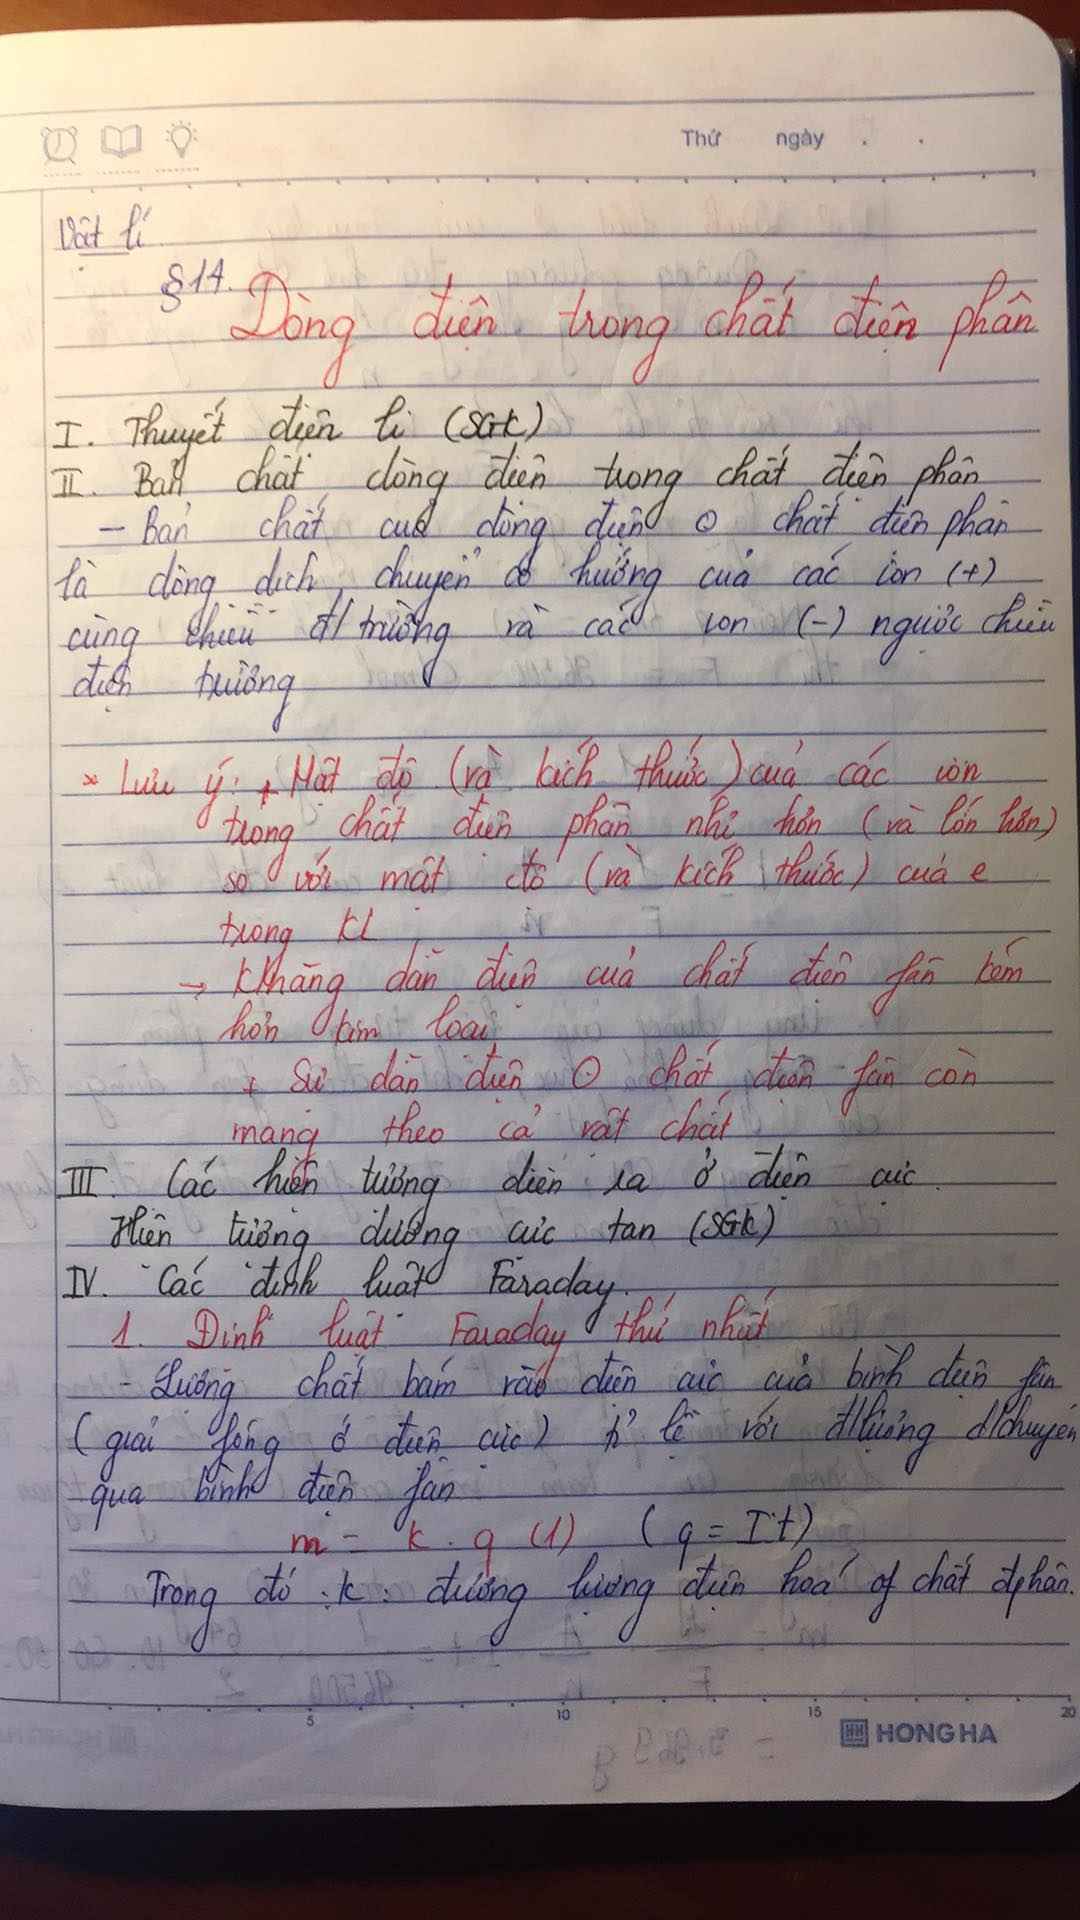 Thứ ngày . .
Vật lí
§14.
Dòng điện trong chất điện phân
I. Thuyết điện li (SGK)
II. Bản chất dòng điện trong chất điện phân
- Bản chất của dòng điện ⊙ chất điện phân
là dòng dịch chuyển có hướng của các ion (+)
cùng chiều đ/trường và các ion (-) ngược chiều
điện trường
* Lưu ý: + Mật độ (và kích thước) của các ion
trong chất điện phân nhỏ hơn (và lớn hơn)
so với mật độ (và kích thước) của e
trong KL
→ Khả năng dẫn điện của chất điện fân kém
hơn kim loại
+ Sự dẫn điện ⊙ chất điện fân còn
mang theo cả vật chất
III. Các hiện tượng diễn ra ở điện cực.
Hiện tượng dương cực tan (SGK)
IV. Các định luật Faraday.
1. Định luật Faraday thứ nhất
- Lượng chất bám vào điện cực của bình điện fân
(giải fóng ở điện cực) tỉ lệ với đ/lượng d/chuyển
qua bình điện fân
m = k . q (1) (q = I.t)
Trong đó : k : đương lượng điện hoá of chất đphân.
5 10 15 20
HH HONG HA